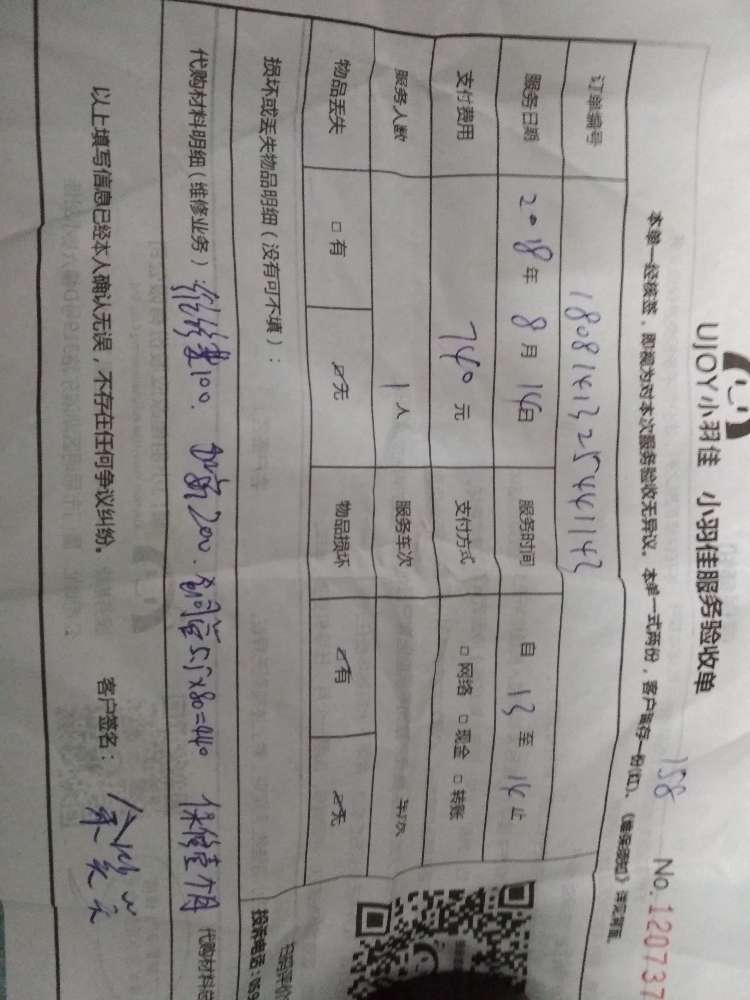 UJOY小羽佳 小羽佳服务验收单
158
No.120737
本单一经核签，即视为对本次服务验收无异议。本单一式两份，客户留存一份(红)、
订单编号 18081413254461143
服务日期 2018年8月14日 服务时间 自13至14止
支付费用 740元 支付方式 □网络 □现金 □转账
服务人数 1人 服务车次 车/次
物品丢失 □有 ☑无 物品损坏 ☑有 ☑无
损坏或丢失物品明细（没有可不填）：
代购材料明细（维修业务） 维修费100. 200. 5.5×80=440 保修壹个月 代购材料
以上填写信息已经本人确认无误，不存在任何争议纠纷。 客户签名：
扫码评价
投诉电话：059